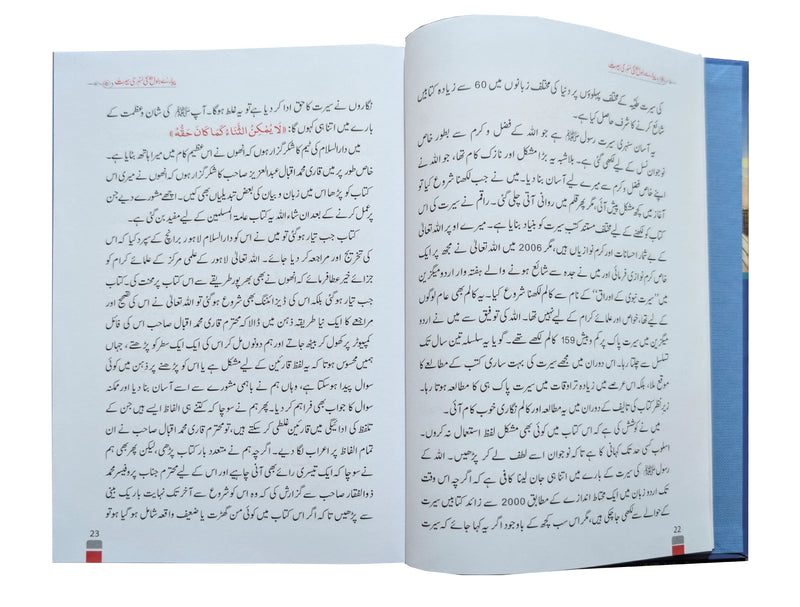 پیارے رسول ﷺ کی سنہری سیرت
کی سیرت طیبہ کے مختلف پہلوؤں پر دنیا کی مختلف زبانوں میں 60 سے زیادہ کتابیں
شائع کرنے کا شرف حاصل کیا ہے۔
یہ آسان سنہری سیرت رسول ﷺ ہے جو اللہ کے فضل و کرم سے بطور خاص
نوجوان نسل کے لیے لکھی گئی ہے۔ بلاشبہ یہ بڑا مشکل اور نازک کام تھا، جو اللہ نے
اپنے خاص فضل و کرم سے میرے لیے آسان بنا دیا۔ میں نے جب لکھنا شروع کیا تو
آغاز میں کچھ مشکل پیش آئی، مگر پھر قلم میں روانی آتی چلی گئی۔ راقم نے سیرت کی اس
کتاب کو لکھنے کے لیے مختلف مستند کتب سیرت کو بنیاد بنایا ہے۔ میرے اوپر اللہ تعالیٰ
کے بے شمار احسانات اور کرم نوازیاں ہیں، مگر 2006 میں اللہ تعالیٰ نے مجھ پر ایک
خاص کرم نوازی فرمائی اور میں نے جدہ سے شائع ہونے والے ہفتہ وار اردو میگزین
میں ”سیرت نبوی کے اوراق“ کے نام سے کالم لکھنا شروع کیا۔ یہ کالم بھی عام لوگوں
کے لیے تھا، خواص اور علمائے کرام کے لیے نہیں تھا۔ اللہ کی توفیق سے میں نے اردو
میگزین میں سیرت پاک پر کم و بیش 159 کالم لکھے تھے۔ گویا یہ سلسلہ تین سال تک
تسلسل سے چلتا رہا۔ اس دوران میں مجھے سیرت کی بہت ساری کتب کے مطالعے کا
موقع ملا، بلکہ اس عرصے میں زیادہ تر اوقات میں سیرت پاک ہی کا مطالعہ کرتا رہا۔
زیر نظر کتاب کی تالیف کے دوران میں یہ مطالعہ اور کالم نگاری خوب کام آئی۔
میں نے کوشش کی ہے کہ اس کتاب میں کوئی بھی مشکل لفظ استعمال نہ کروں۔
اسلوب کسی حد تک کہانی کا سا ہے تاکہ نوجوان اسے لطف لے کر پڑھیں۔ اللہ کے
رسول ﷺ کی سیرت کے بارے میں اتنا ہی جان لینا کافی ہے کہ اگرچہ اس وقت
تک اردو زبان میں ایک محتاط اندازے کے مطابق 2000 سے زائد کتابیں سیرت
کے حوالے سے لکھی جاچکی ہیں، مگر اس سب کچھ کے باوجود اگر یہ کہا جائے کہ سیرت
22
پیارے رسول ﷺ کی سنہری سیرت
نگاروں نے سیرت کا حق ادا کر دیا ہے تو یہ غلط ہوگا۔ آپ ﷺ کی شان و عظمت کے
بارے میں اتنا ہی کہوں گا: «لَا يُمْكِنُ الثَّنَاءُ كَمَا كَانَ حَقُّهُ»
میں دارالسلام کی ٹیم کا شکر گزار ہوں کہ انھوں نے اس عظیم کام میں میرا ہاتھ بنایا ہے۔
خاص طور پر میں قاری محمد اقبال عبدالعزیز صاحب کا شکر گزار ہوں کہ انھوں نے میری اس
کتاب کو پڑھا اس میں زبان و بیان کی بعض تبدیلیاں بھی کیں۔ اچھے مشورے دیے جن
پر عمل کرنے کے بعد ان شاء اللہ یہ کتاب عامۃ المسلمین کے لیے مفید بن گئی ہے۔
کتاب جب تیار ہوگئی تو میں نے اس کو دارالسلام لاہور برانچ کے سپرد کیا کہ اس
کی تخریج اور مراجعہ کر دیا جائے۔ اللہ تعالیٰ لاہور کے علمی مرکز کے علمائے کرام کو
جزائے خیر عطا فرمائے کہ انھوں نے بھی بھرپور طریقے سے اس کتاب پر محنت کی۔ کتاب
جب تیار ہوگئی بلکہ اس کی ڈیزائننگ بھی شروع ہوگئی تو اللہ تعالیٰ نے اس کی تصحیح اور
مراجعے کا ایک نیا طریقہ ذہن میں ڈالا کہ محترم قاری محمد اقبال صاحب اس کی فائل
کمپیوٹر پر کھول کر بیٹھ جاتے اور ہم دونوں مل کر اس کی ایک ایک سطر کو پڑھتے، جہاں
ہمیں محسوس ہوتا کہ یہ لفظ قارئین کے لیے مشکل ہے یا اس کو پڑھنے پر ذہن میں کوئی
سوال پیدا ہوسکتا ہے، وہاں ہم نے باہمی مشورے سے اسے آسان بنا دیا اور ممکنہ
سوال کا جواب بھی فراہم کر دیا۔ پھر ہم نے سوچا کہ کتنے ہی الفاظ ایسے ہیں جن کے
تلفظ کی ادائیگی میں قارئین غلطی کر سکتے ہیں، تو محترم قاری محمد اقبال صاحب نے ان
تمام الفاظ پر اعراب لگا دیے۔ اگرچہ ہم نے متعدد بار کتاب پڑھی، لیکن پھر بھی ہم
نے سوچا کہ ایک تیسری رائے بھی آنی چاہیے اور اس کے لیے محترم جناب پروفیسر محمد
ذوالفقار صاحب سے گزارش کی کہ وہ اس کو شروع سے آخر تک نہایت باریک بینی
سے پڑھیں تاکہ اگر اس کتاب میں کوئی من گھڑت یا ضعیف واقعہ شامل ہو گیا ہو تو
23